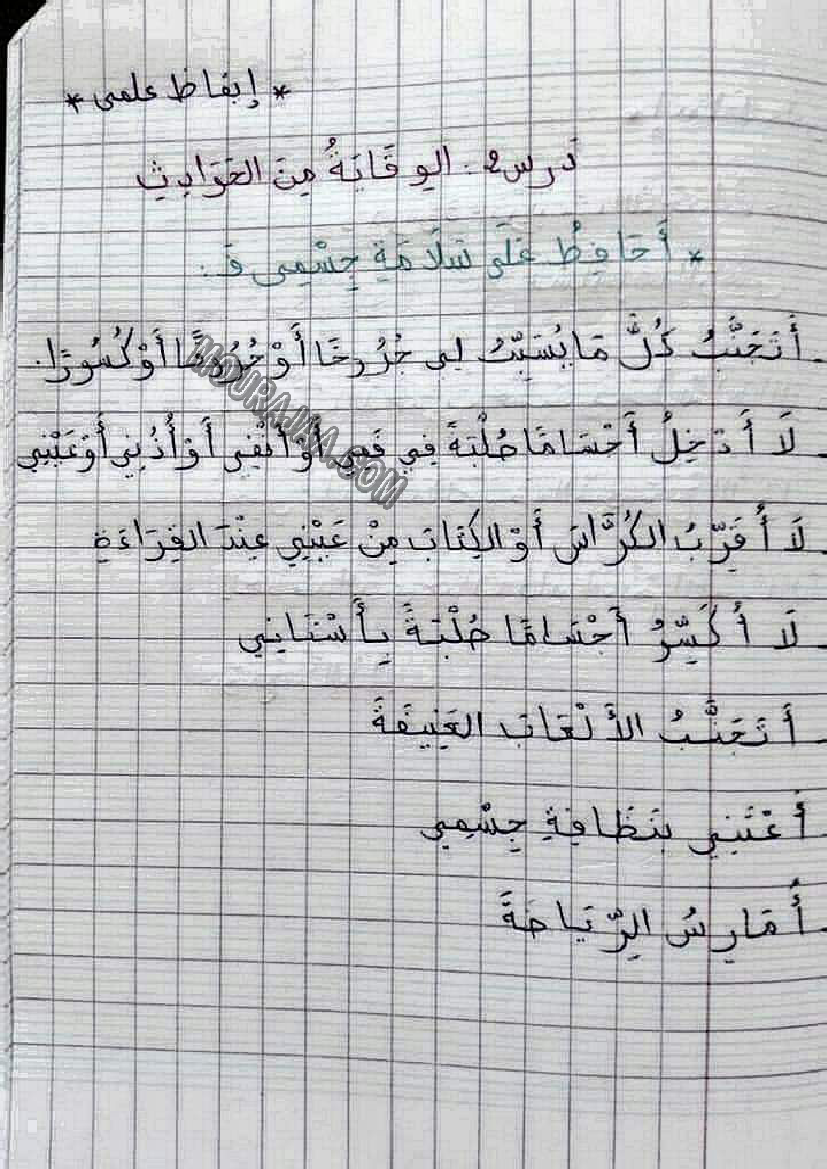 * إيقاظ علمي *
درس 2: الوقَايَةُ مِنَ الحَوَادِثِ
* أُحَافِظُ عَلَى سَلَامَةِ جِسْمِي فَ:
- أَتَجَنَّبُ كُلَّ مَا يُسَبِّبُ لِي جُرُوحًا أَوْ حُرُوقًا أَوْ كُسُورًا.
- لَا أُدْخِلُ أَجْسَامًا صُلْبَةً فِي فَمِي أَوْ أَنْفِي أَوْ أُذُنِي أَوْ عَيْنِي
- لَا أُقَرِّبُ الكُرَّاسَ أَوْ الكِتَابَ مِنْ عَيْنِي عِنْدَ القِرَاءَةِ
- لَا أُكَسِّرُ أَجْسَامًا صُلْبَةً بِأَسْنَانِي
- أَتَجَنَّبُ الأَلْعَابَ العَنِيفَةَ
- أَعْتَنِي بِنَظَافَةِ جِسْمِي
- أُمَارِسُ الرِّيَاضَةَ
MOURAJAA.COM